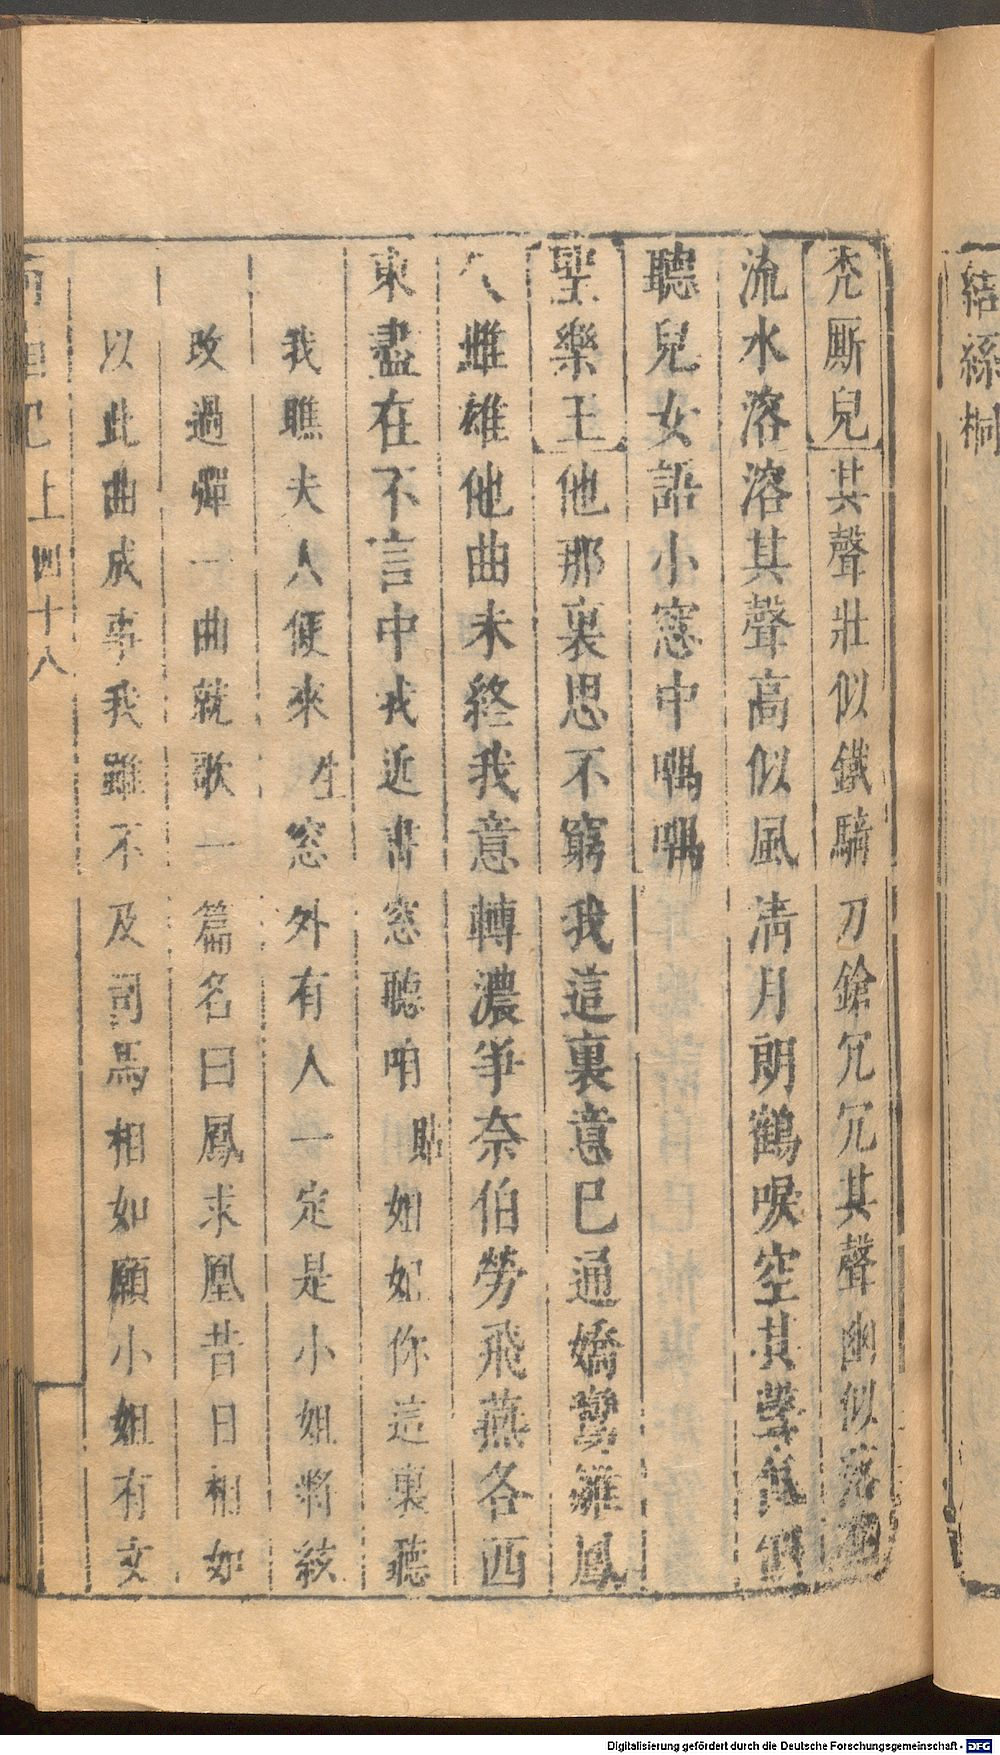 結絲桐
禿厮兒其聲壯似鐵騎刀鎗冗冗其聲幽似落花
流水溶溶其聲高似風清月朗鶴唳空其聲低似
聽兒女語小窓中喁喁
聖樂王他那裏思不窮我這裏意已通嬌鸞雛鳳
失雌雄他曲未終我意轉濃爭奈伯勞飛燕各西
東盡在不言中我近書窓聽咱 貼 姐姐你這裏聽
我瞧夫人便來 生 窓外有人一定是小姐將絃
改過彈一曲就歌一篇名曰鳳求凰昔日相如
以此曲成事我雖不及司馬相如願小姐有文
西廂記 上 四十八
Digitalisierung gefördert durch die Deutsche Forschungsgemeinschaft - DFG